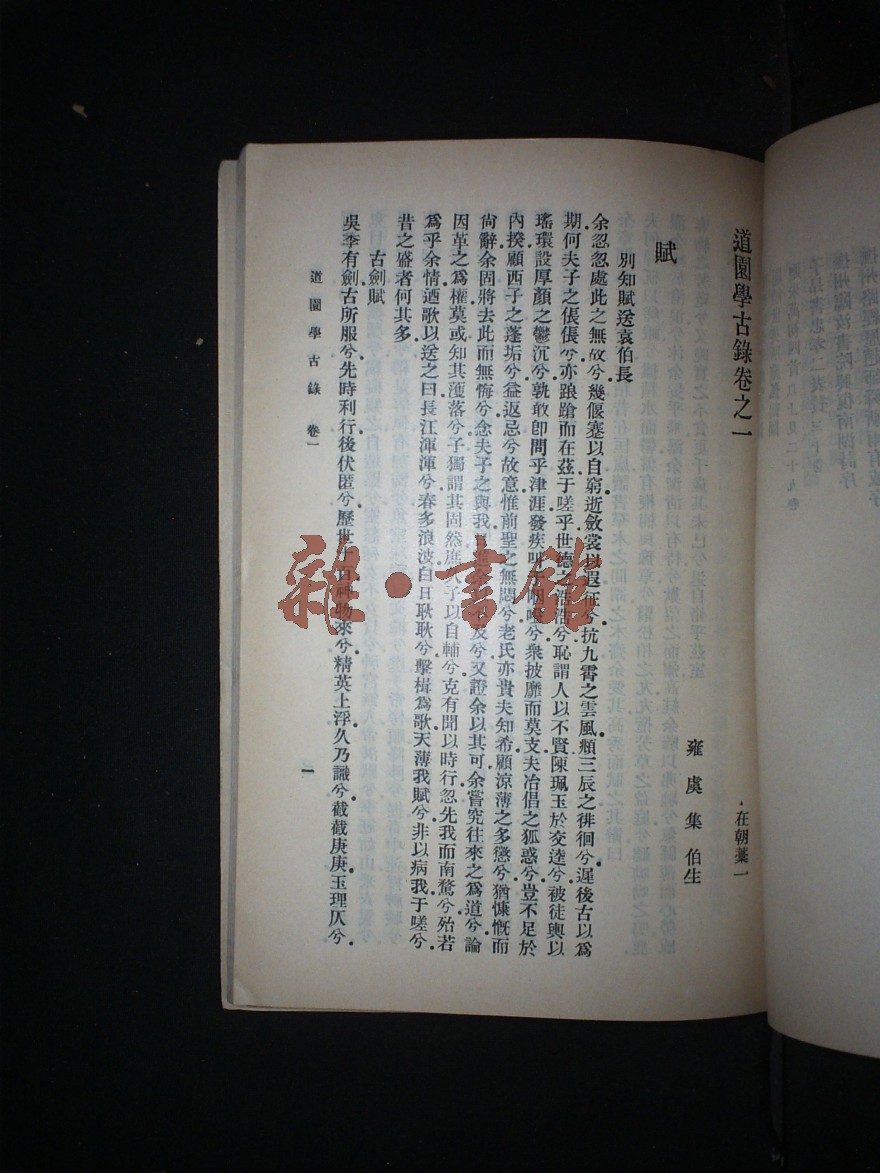 道園學古錄卷之一
在朝藁一
雍虞集伯生
賦
別知賦送袁伯長
余忽忽處此之無故兮幾偃蹇以自窮逝斂裳以遐征兮抗九霄之雲風頫三辰之徘徊兮遲後古以爲
期何夫子之倀倀兮亦踉蹌而在茲于嗟乎世德之浩浩兮恥謂人以不賢陳珮玉於交逵兮被徒輿以
瑤環設厚顏之鬱沉兮孰敢卽問乎津涯發疾呼于咽喉兮衆披靡而莫支夫冶倡之狐惑兮豈不足於
內揆顧西子之蓬垢兮益返忌兮故意惟前聖之無悶兮老氏亦貴夫知希顧涼薄之多愆兮猶慷慨而
尙辭余固將去此而無悔兮念夫子之與我及兮又證余以其可余嘗究往來之爲道兮論
因革之爲權莫或知其濩落兮子獨謂其固然庶久子以自輔兮克有聞以時行忽先我而南騖兮殆若
爲乎余情迺歌以送之曰長江渾渾兮春多浪波白日耿耿兮擊楫爲歌天薄我賦兮非以病我于嗟兮
昔之盛者何其多
古劍賦
吳季有劍古所服兮先時利行後伏匿兮歷世千百神物來兮精英上浮久乃識兮截截庚庚玉理仄兮
道園學古錄 卷一
一
雜·書館